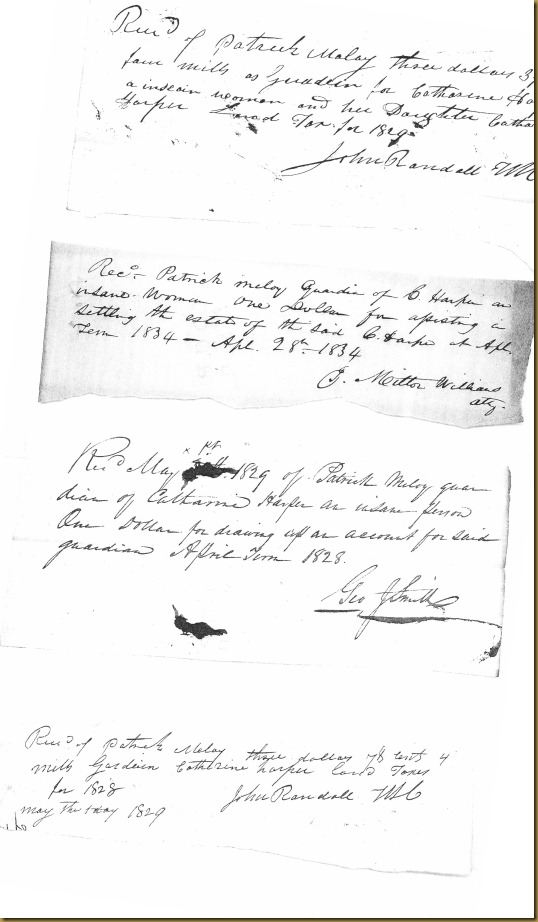 Reced of Patrick Maloy three dollars 3
four mills as guddein for Catharine Ha
a inseain women and her Daughter Catha
Harper Land Tax for 1829
John Randall
Recd Patrick Meloy Guardin of C Harper an
insane Woman One Dollar for assisting in
settling the estate of the said C. Harper at Apl.
Term 1834 – Apl. 28th 1834
J. Mitton Williams
atty.
Recd May 1829 of Patrick Meloy guar
dian of Catharine Harper an insane person
One Dollar for drawing up an account for said
guardian April Term 1828.
Geo J Smith
Recd of Patrick Meloy three dollars 78 cents 4
mills Gardein Catherine harper Land Taxes
for 1828
John Randall
may the 1 day 1829